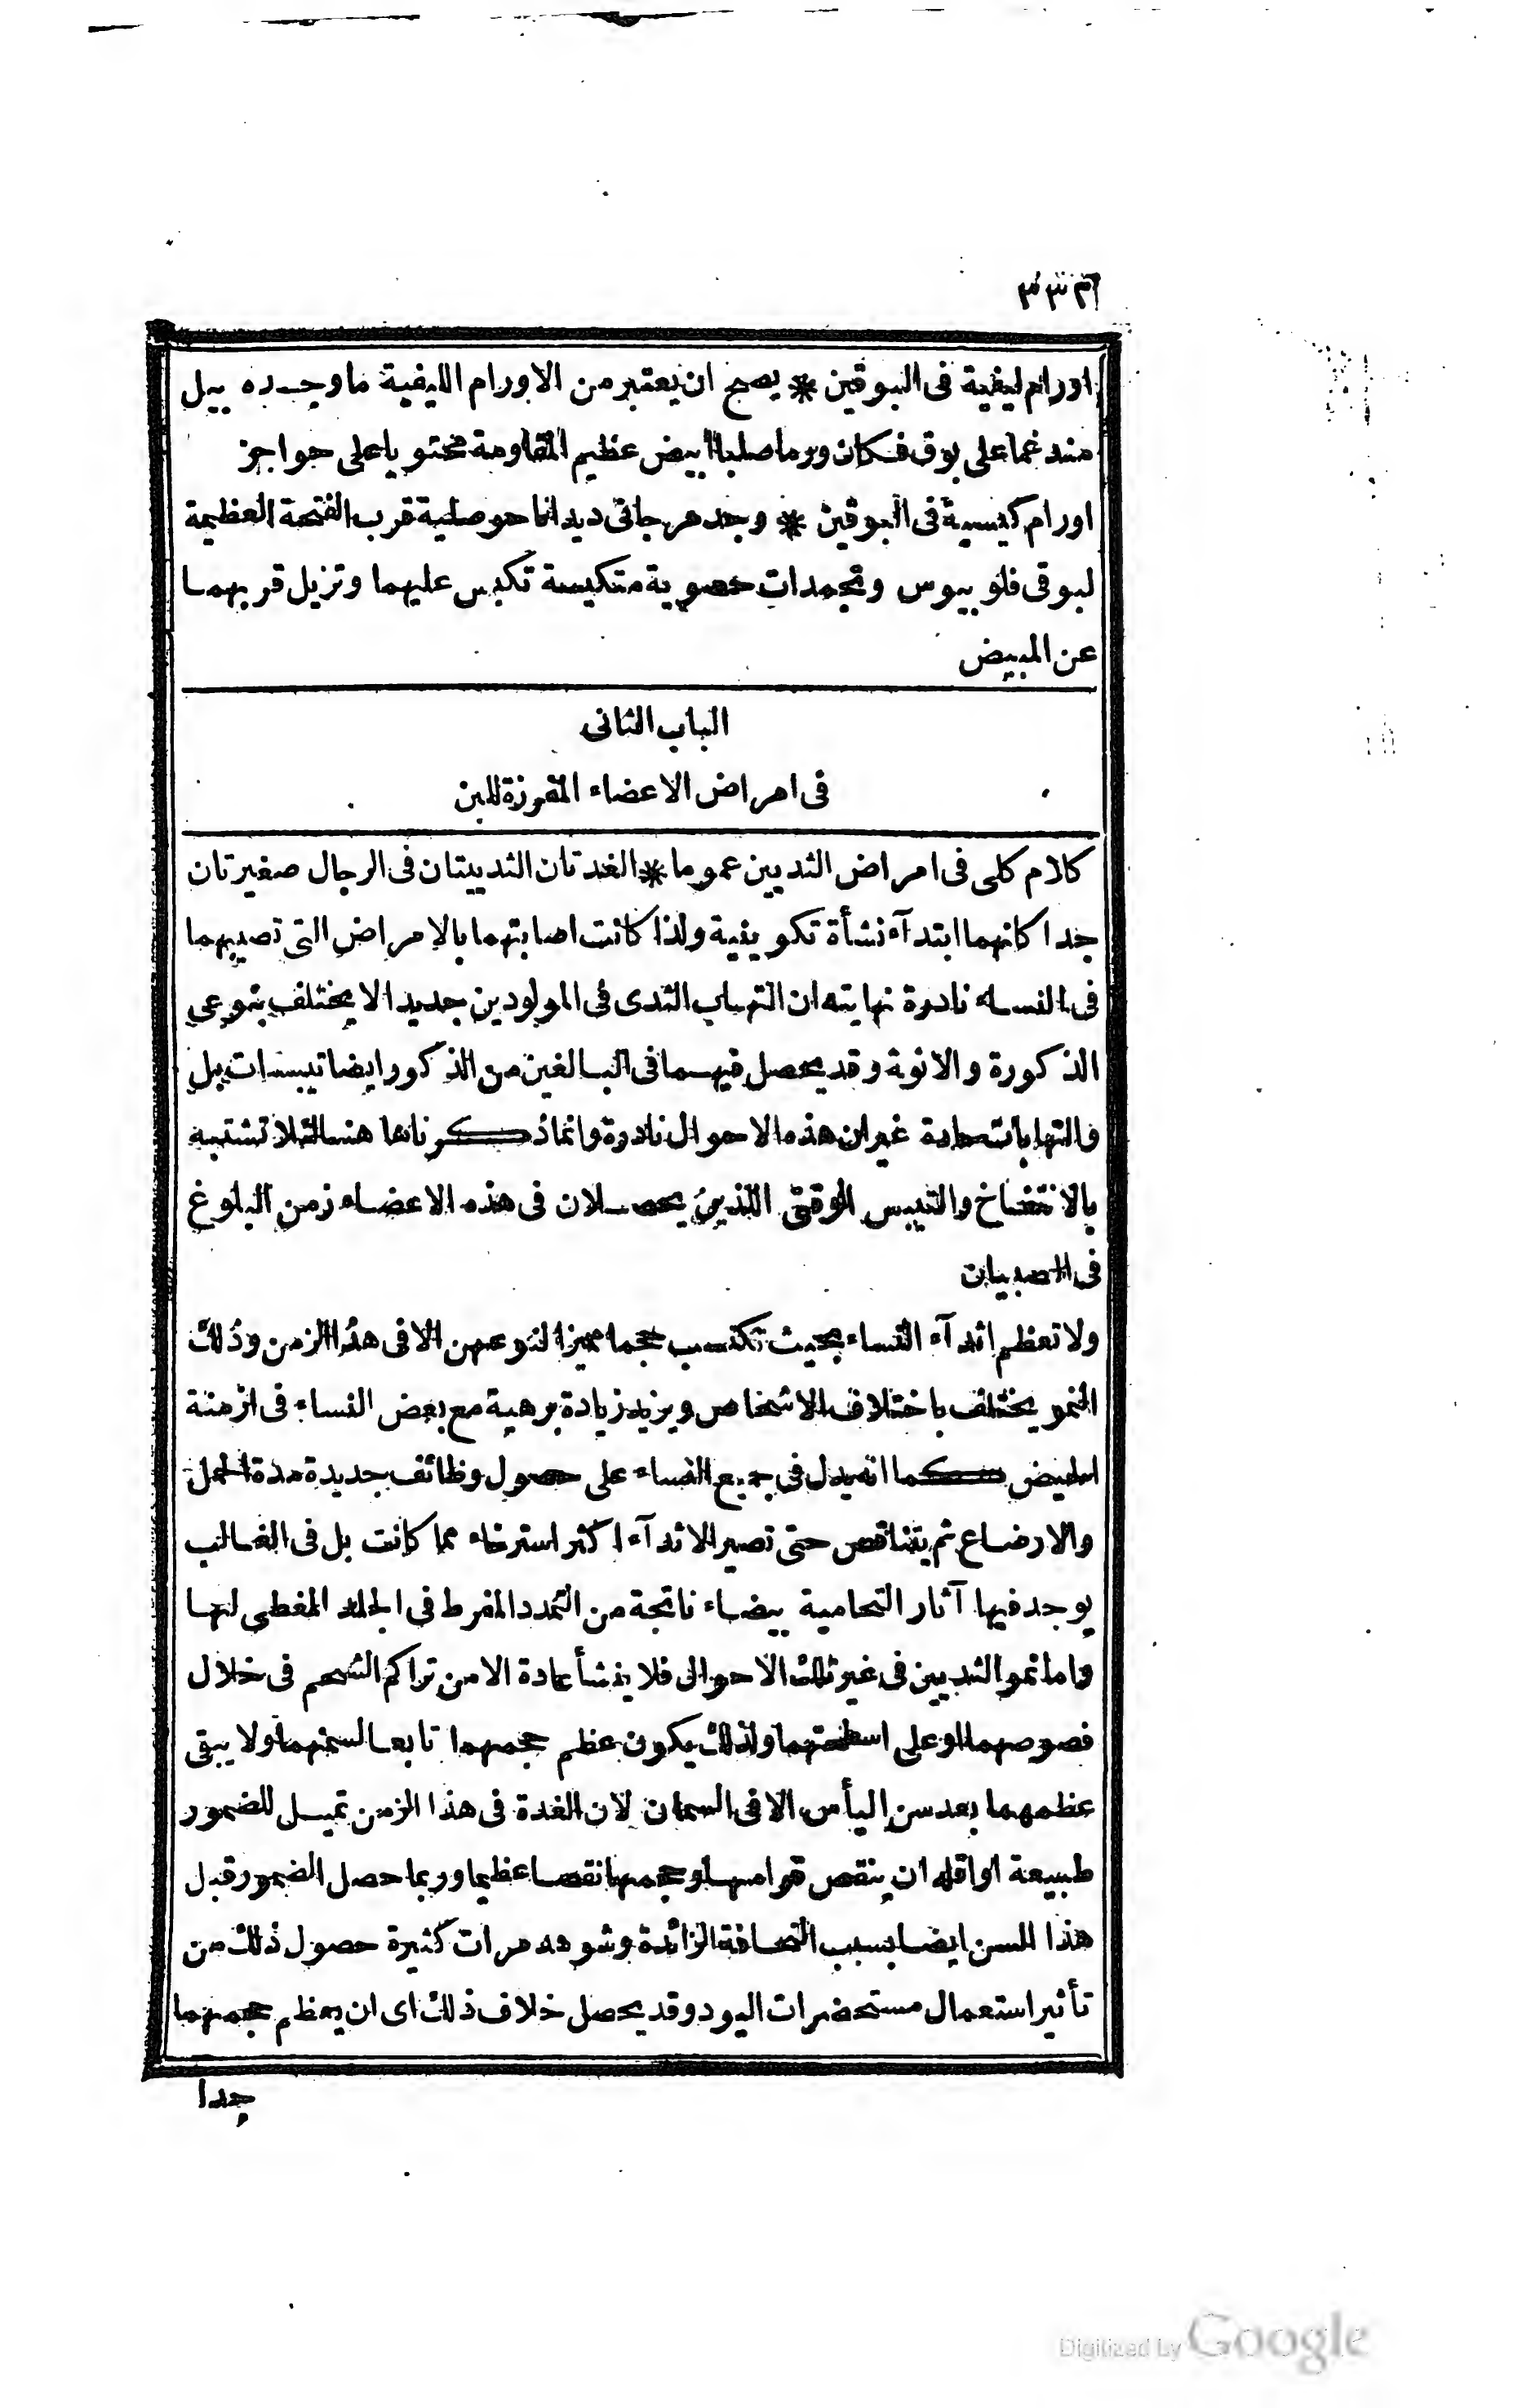 اورام ليفية فى البوقين * يصح ان يعتبر من الاورام الليفية ما وجده بيل
مندغما على بوق فكان ورما صلبا ابيض عظيم المقاومة محتويا على حواجز
اورام كيسية فى البوقين * وجد مرجانى ديدانا حوصلية قرب الفتحة العظيمة
لبوقى فلوبيوس وتجمدات حصوية متكيسة تكبس عليهما وتزيل قربهما
عن المبيض
الباب الثانى
فى امراض الاعضاء المفرزة للبن
كلام كلى فى امراض الثديين عموما * الغدتان الثدييتان فى الرجال صغيرتان
جدا كانهما ابتدآء نشأة تكوينية ولذا كانت اصابتهما بالامراض التى تصيبهما
فى النساء نادرة نهايته ان التهاب الثدى فى المولودين جديدا لا يختلف بنوعى
الذكورة والانوثة وقد يحصل فيهما فى البالغين من الذكور ايضا تيبسات بل
والتهابات حادة غير ان هذه الاحوال نادرة وانما ذكرناها هنا لئلا تشتبه
بالانتفاخ والتيبس الوقتى اللذين يحصلان فى هذه الاعضاء زمن البلوغ
فى الصبيان
ولا تعظم اثدآء النساء بحيث تكتسب حجما مميزا لنوعهن الا فى هذا الزمن وذلك
النمو يختلف باختلاف الاشخاص ويزيد زيادة برهية مع بعض النساء فى ازمنة
الحيض كما انه يدل فى جميع النساء على حصول وظائف جديدة مدة الحمل
والارضاع ثم يتناقص حتى تصير الاثدآء اكثر استرخاء مما كانت بل فى الغالب
يوجد فيها آثار التحامية بيضاء ناتجة من التمدد المفرط فى الجلد المغطى لها
واما نمو الثديين فى غير تلك الاحوال فلا ينشأ عادة الا من تراكم الشحم فى خلال
فصوصهما او على اسطحتهما ولذلك يكون عظم حجمهما تابعا لسمنهما ولا يبقى
عظمهما بعد سن اليأس الا فى السمان لان الغدة فى هذا الزمن تميل للضمور
طبيعة او اقله ان ينقص قوامها وحجمها نقصا عظيما وربما حصل الضمور قبل
هذا السن ايضا بسبب النحافة الزائدة وشوهد مرات كثيرة حصول ذلك من
تأثير استعمال مستحضرات اليود وقد يحصل خلاف ذلك اى ان يعظم حجمهما
جدا
Digitized by Google